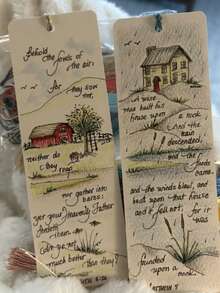 Behold
the fowls of
the air:
for they sow
not,
neither do
they reap
nor gather into
barns;
yet your Heavenly Father
feedeth them.
Are ye not
much better than they?
MATTHEW 6:26
A wise
man built his
house upon
a rock.
And the
rain
descended,
and the
floods
came,
and the winds blew, and
beat upon that house
and it fell not: for it
was
founded
upon a
rock.
MATTHEW 7